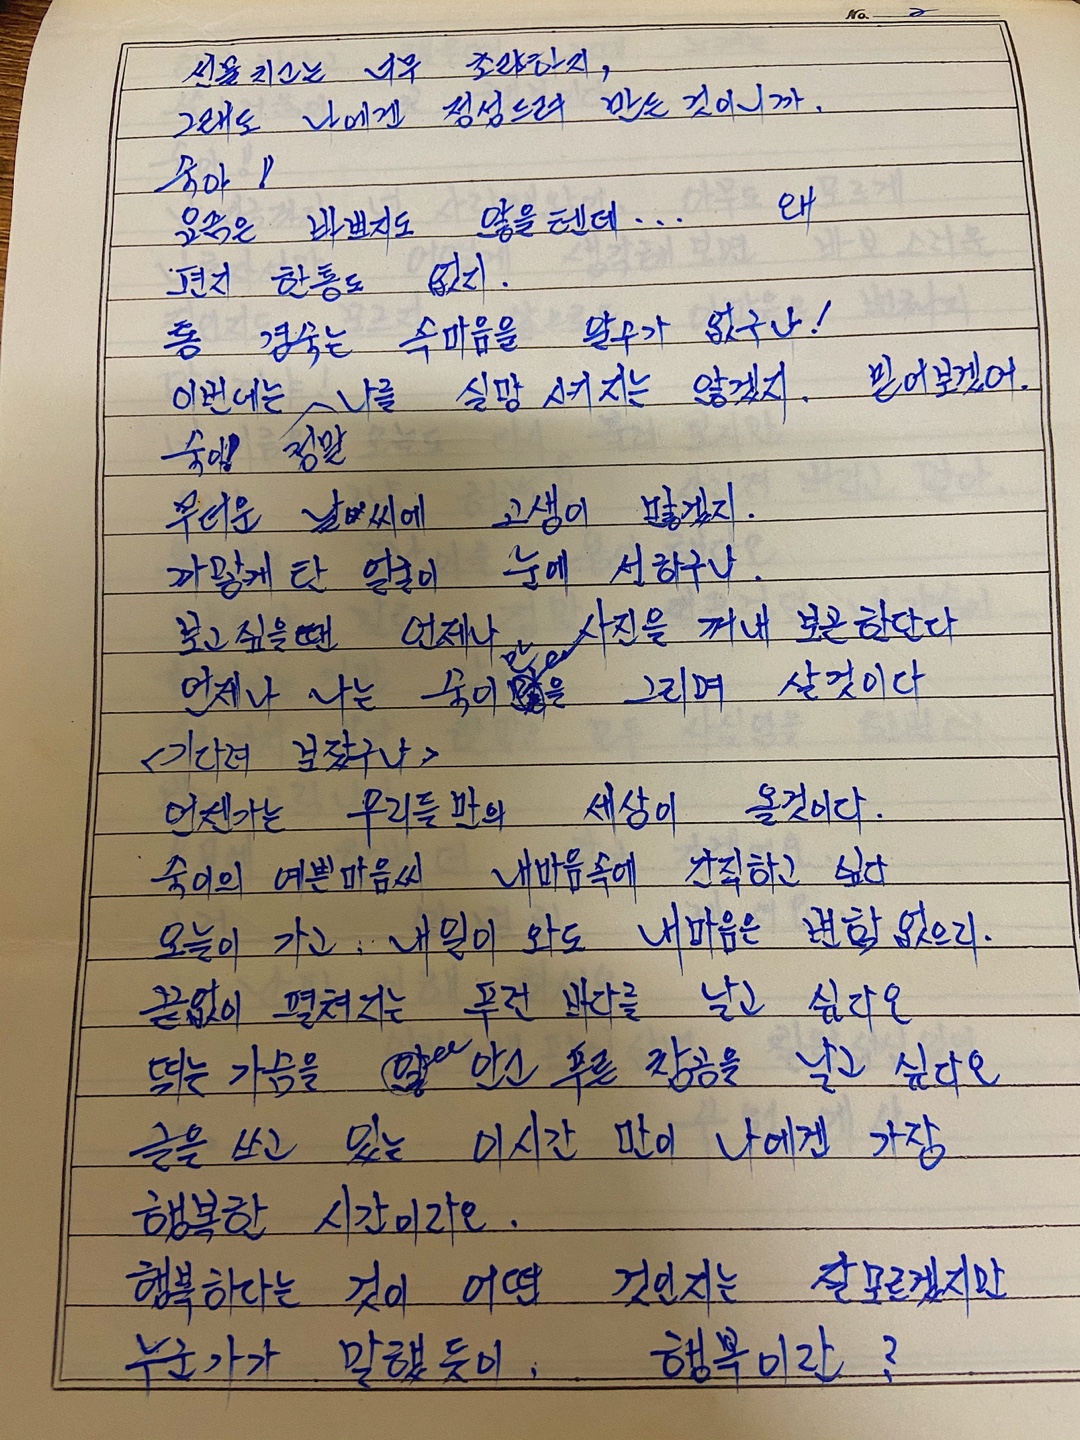 No. 2
선물치고는 너무 초라하지,
그래도 나에겐 정성드려 만든 것이니까.
숙아!
요즘은 바쁘지도 않을텐데... 왜
편지 한통도 없지.
통 경숙는 속마음을 알수가 없구나!
이번에는 정말 나를 실망 시키지는 않겠지. 믿어보겠어.
숙아!
무더운 날씨에 고생이 많겠지.
까맣게 탄 얼굴이 눈에 선하구나.
보고싶을땐 언제나 사진을 꺼내 보곤한단다
언제나 나는 숙이만을 그리며 살것이다
<기다려 보잤구나>
언젠가는 우리들만의 세상이 올것이다.
숙이의 예쁜마음씨 내마음속에 간직하고 싶다
오늘이 가고. 내일이 와도 내마음은 변함없으리.
끝없이 펼쳐지는 푸런 바다를 날고 싶다오
띄는 가슴을 안고 푸른 창공을 날고 싶다오
글을 쓰고 있는 이시간 만이 나에겐 가장
행복한 시간이라오.
행복하다는 것이 어떤 것인지는 잘모르겠지만
누군가가 말했듯이. 행복이란?